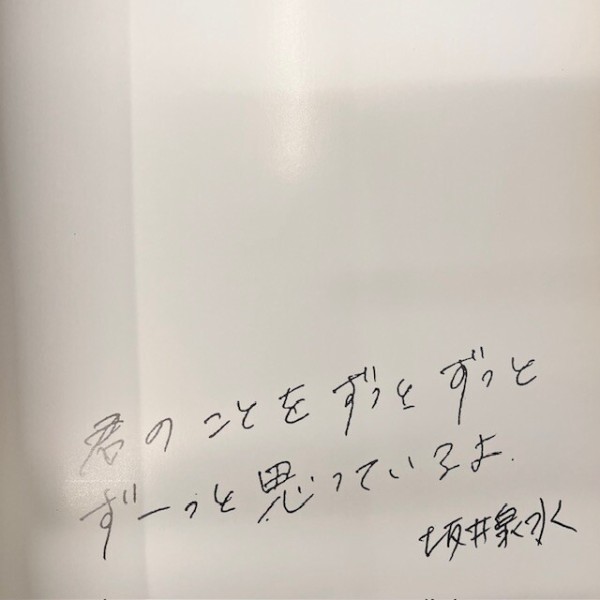 君のことをずっとずっと
ずーっと思っているよ.
坂井泉水